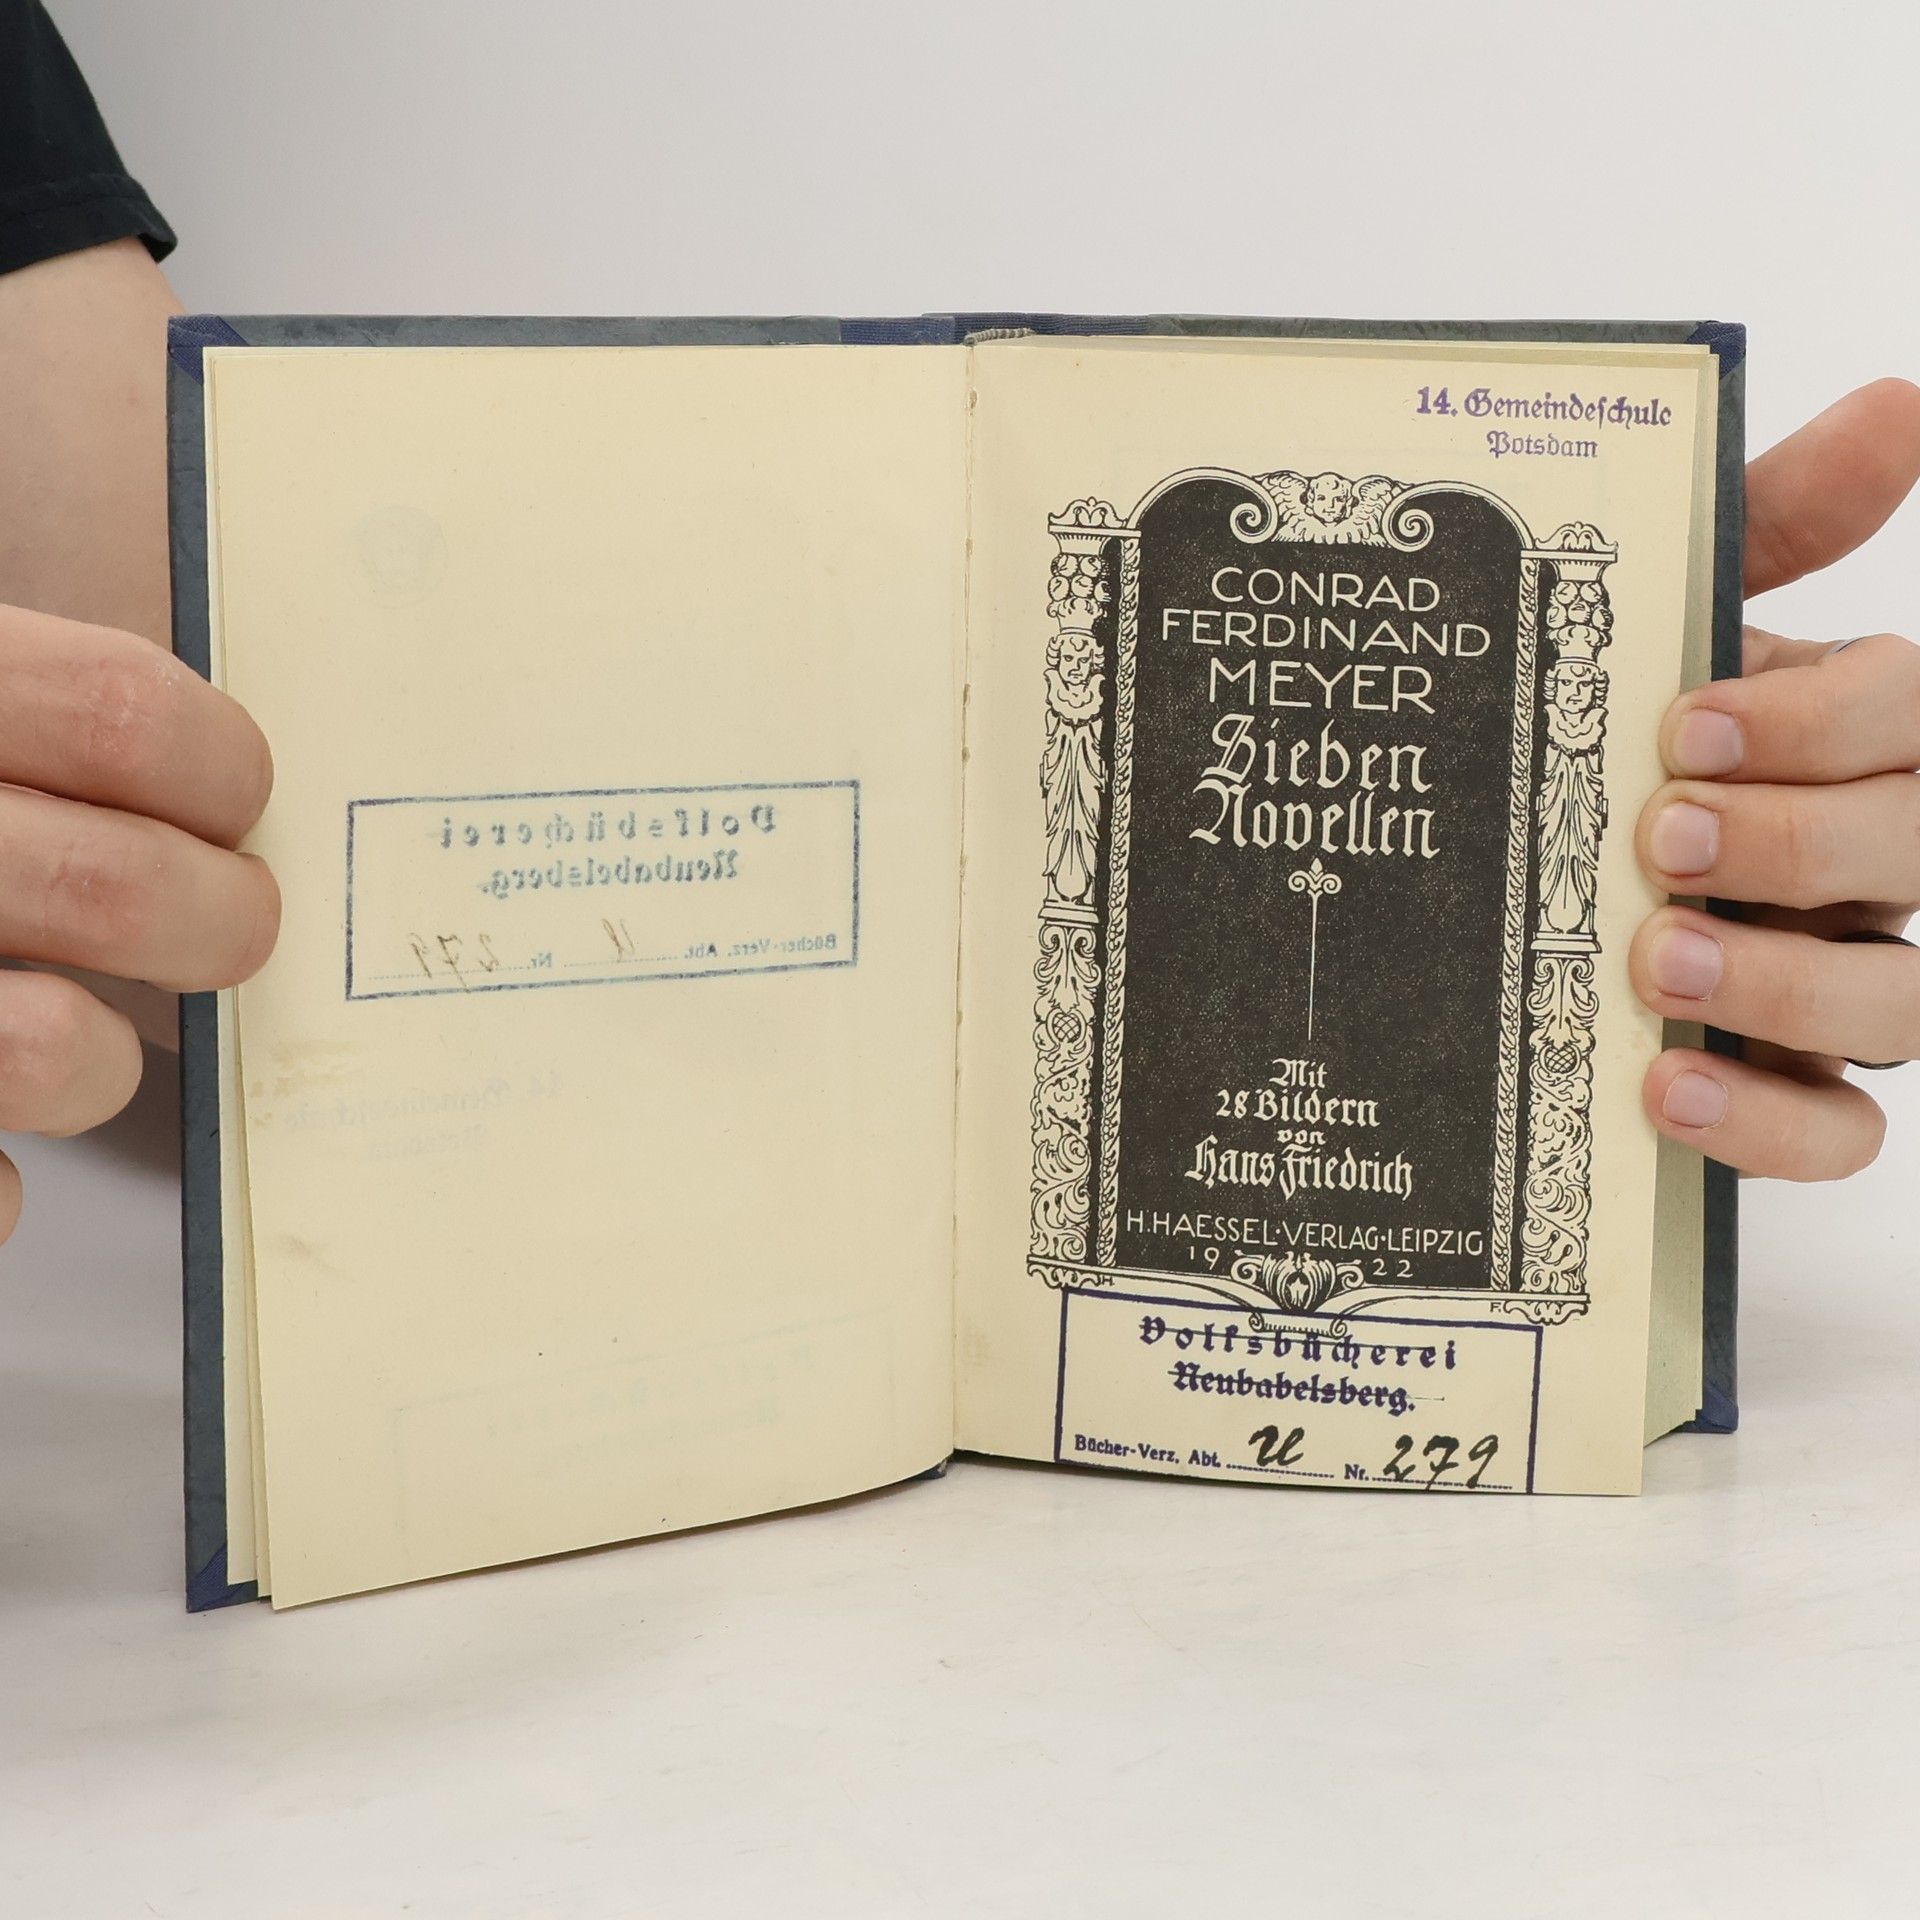 Volksbücherei
Neubabelsberg.
Bücher-Verz. Abt. U Nr. 279
14. Gemeindeschule
Potsdam
CONRAD
FERDINAND
MEYER
Sieben
Novellen
Mit
28 Bildern
von
Hans Friedrich
H. HAESSEL·VERLAG·LEIPZIG
19 22
H F.
Volksbücherei
Neubabelsberg.
Bücher-Verz. Abt. U Nr. 279